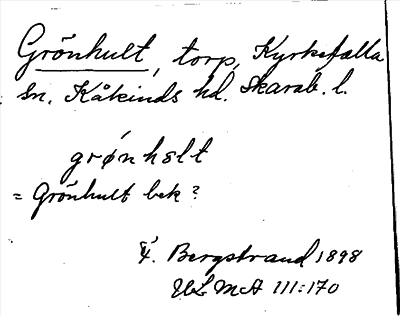 Grönhult, torp, Kyrkefalla
sn. Kåkinds hd. Skarab. l.
grønhɐlt
= Grönhult bek?
Bergstrand 1898
ULMA 111:170